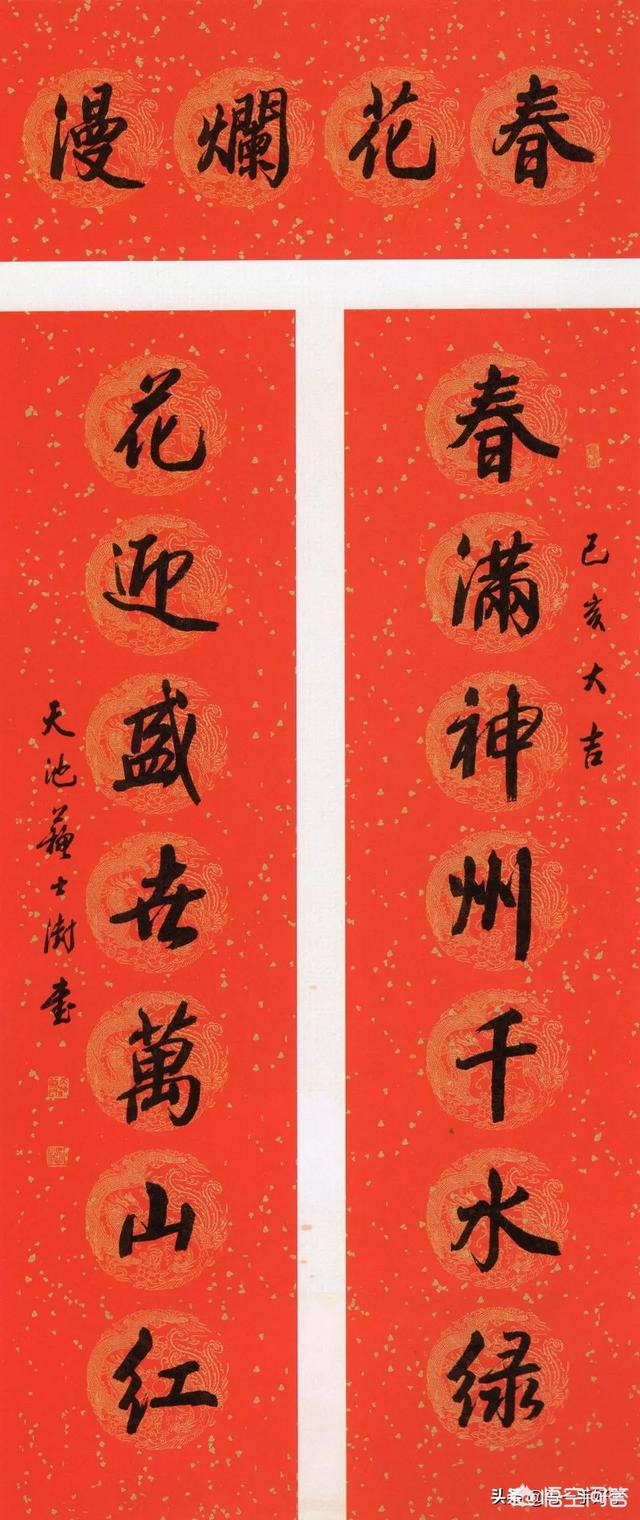 春花爛漫
己亥大吉
春滿神州千水绿
花迎盛世萬山红
天池蘇士澍書